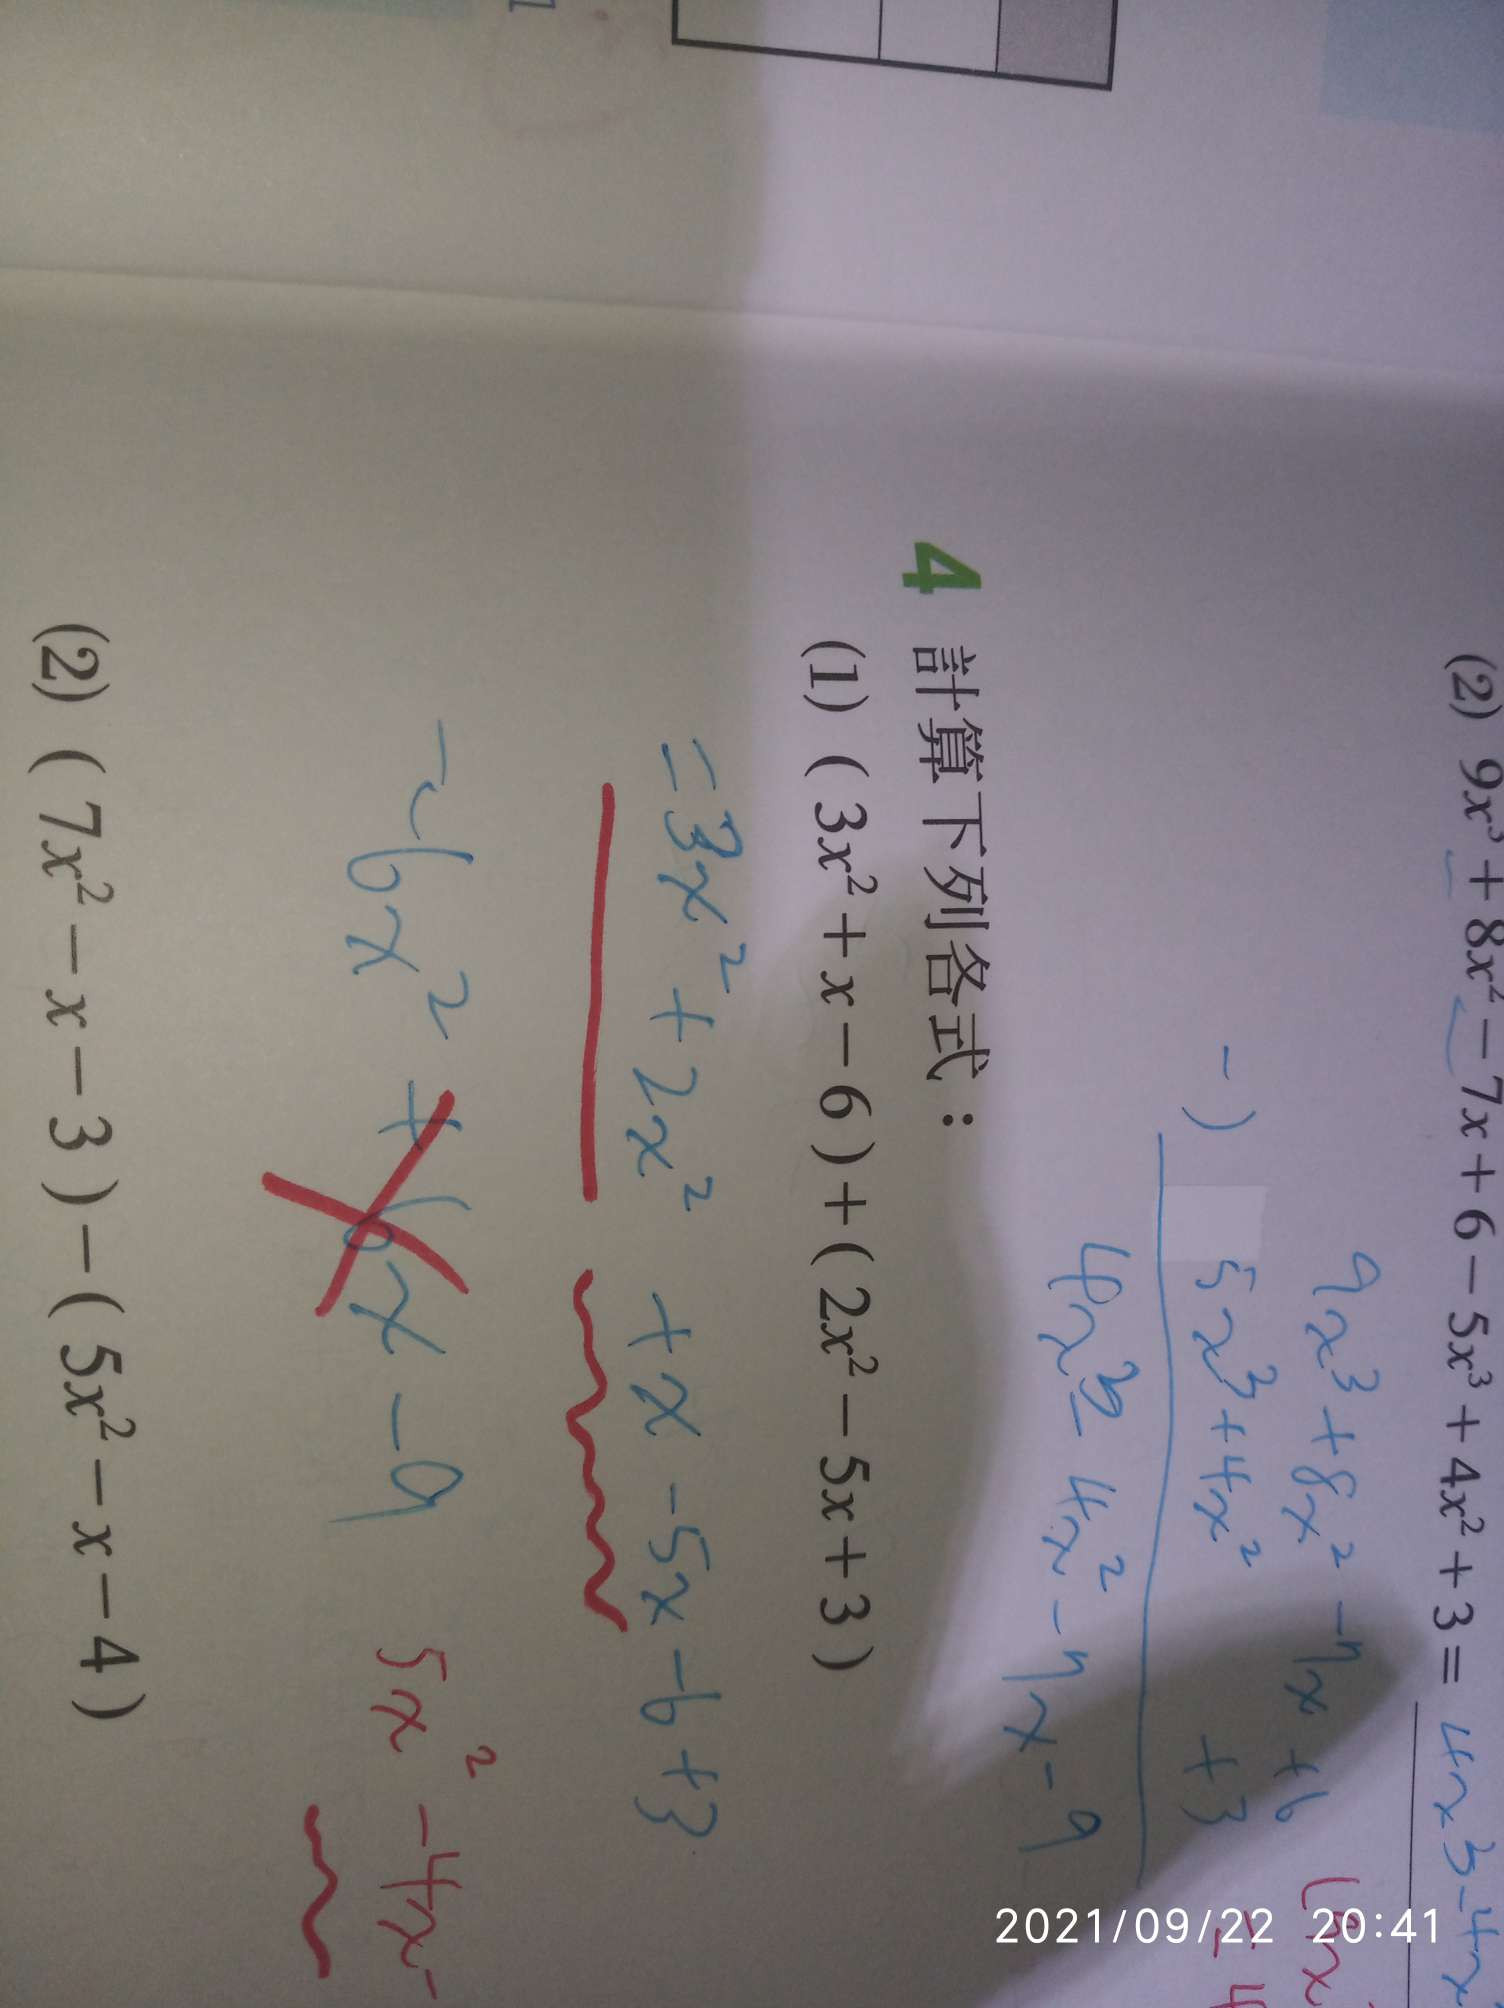 (2) 9x³+8x²−7x+6−5x³+4x²+3= 4x³-4x
9x³+8x²-7x+6
-) 5x³+4x² +3
4x³-4x²-7x-9
4 計算下列各式：
(1) (3x²+x−6)+(2x²−5x+3)
=3x²+2x²+x-5x-6+3
6x²+6x-9 5x²-4x-
(2) (7x²−x−3)−(5x²−x−4)
2021/09/22 20:41